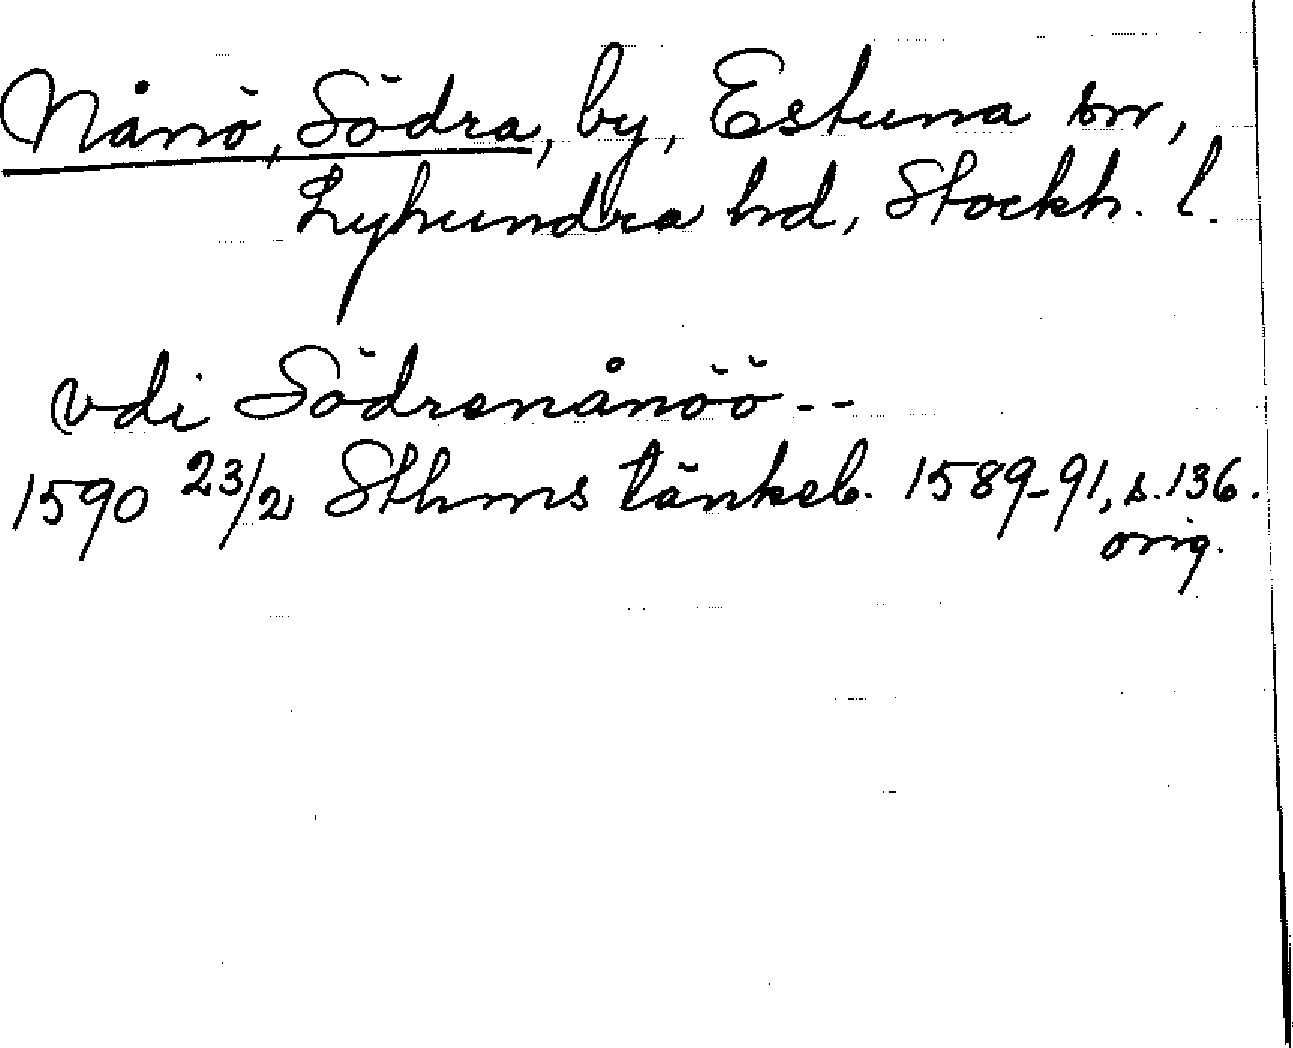 Nånö, Södra, by, Estuna sn,
Lyhundra hd, Stockh. l.
vdi Södrenånöö --
1590 23/2 Sthms tänkeb. 1589-91, s. 136.
orig.